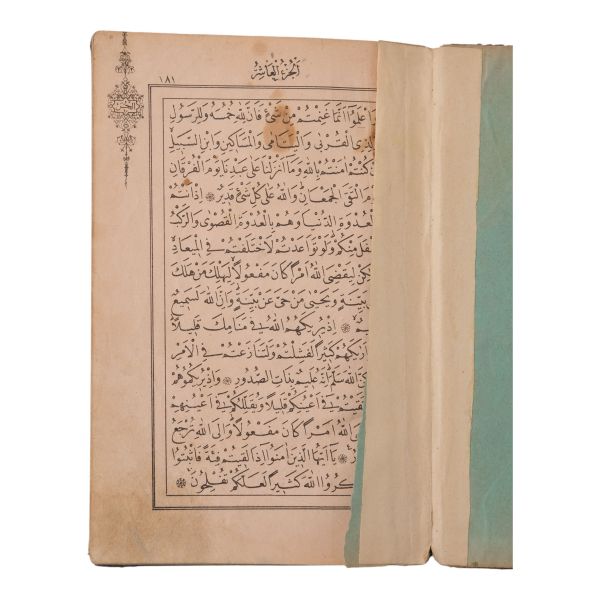 اَلْجُزْءُ الْعَاشِرُ
١٨١
اعْلَمُوٓا اَنَّمَا غَنِمْتُمْ مِنْ شَىْءٍ فَاَنَّ لِلّٰهِ خُمُسَهُ وَلِلرَّسُولِ
لِذِى الْقُرْبٰى وَالْيَتَامٰى وَالْمَسَاكِينِ وَابْنِ السَّبِيلِ
كُنْتُمْ اٰمَنْتُمْ بِاللّٰهِ وَمَٓا اَنْزَلْنَا عَلٰى عَبْدِنَا يَوْمَ الْفُرْقَانِ
وْمَ الْتَقَى الْجَمْعَانِ وَاللّٰهُ عَلٰى كُلِّ شَىْءٍ قَدِيرٌ ۞ اِذْ اَنْتُمْ
الْعُدْوَةِ الدُّنْيَا وَهُمْ بِالْعُدْوَةِ الْقُصْوٰى وَالرَّكْبُ
فَلَ مِنْكُمْ وَلَوْ تَوَاعَدْتُمْ لَاخْتَلَفْتُمْ فِى الْمِيعَادِ
كِنْ لِيَقْضِىَ اللّٰهُ اَمْرًا كَانَ مَفْعُولًا لِيَهْلِكَ مَنْ هَلَكَ
بَيِّنَةٍ وَيَحْيٰى مَنْ حَىَّ عَنْ بَيِّنَةٍ وَاِنَّ اللّٰهَ لَسَمِيعٌ
مٌ ۞ اِذْ يُرِيكَهُمُ اللّٰهُ فِى مَنَامِكَ قَلِيلًا
اَرٰيكَهُمْ كَثِيرًا لَفَشِلْتُمْ وَلَتَنَازَعْتُمْ فِى الْاَمْرِ
كِنَّ اللّٰهَ سَلَّمَ اِنَّهُ عَلِيمٌ بِذَاتِ الصُّدُورِ ۞ وَاِذْ يُرِيكُمُوهُمْ
تَقَيْتُمْ فِٓى اَعْيُنِكُمْ قَلِيلًا وَيُقَلِّلُكُمْ فِٓى اَعْيُنِهِمْ
اللّٰهُ اَمْرًا كَانَ مَفْعُولًا وَاِلَى اللّٰهِ تُرْجَعُ
رُ ۞ يَٓا اَيُّهَا الَّذِينَ اٰمَنُٓوا اِذَا لَقِيتُمْ فِئَةً فَاثْبُتُوا
كُرُوا اللّٰهَ كَثِيرًا لَعَلَّكُمْ تُفْلِحُونَ ۞